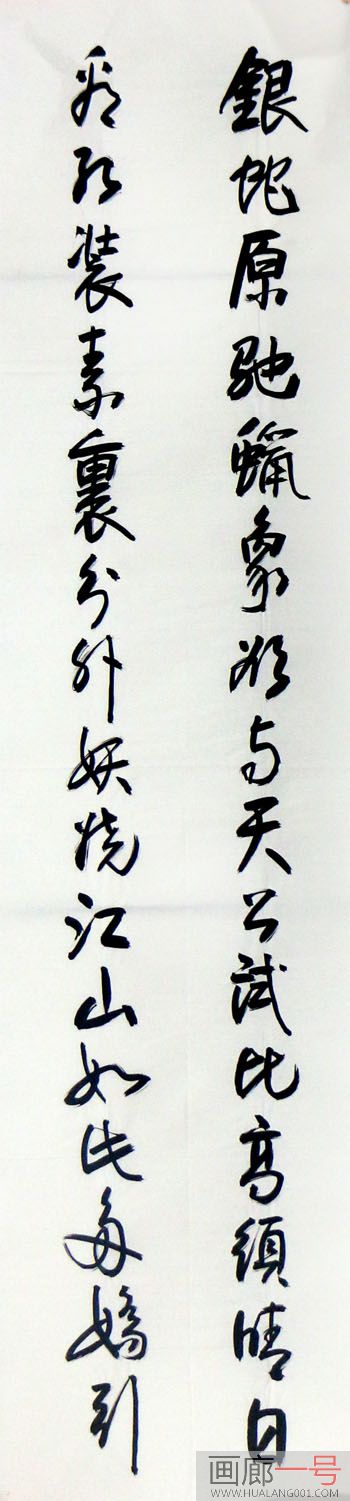 銀蛇原馳蠟象欲与天公試比高須晴日
看红装素裹分外妖娆江山如此多嬌引
画廊一号
WWW.HUALANG001.COM